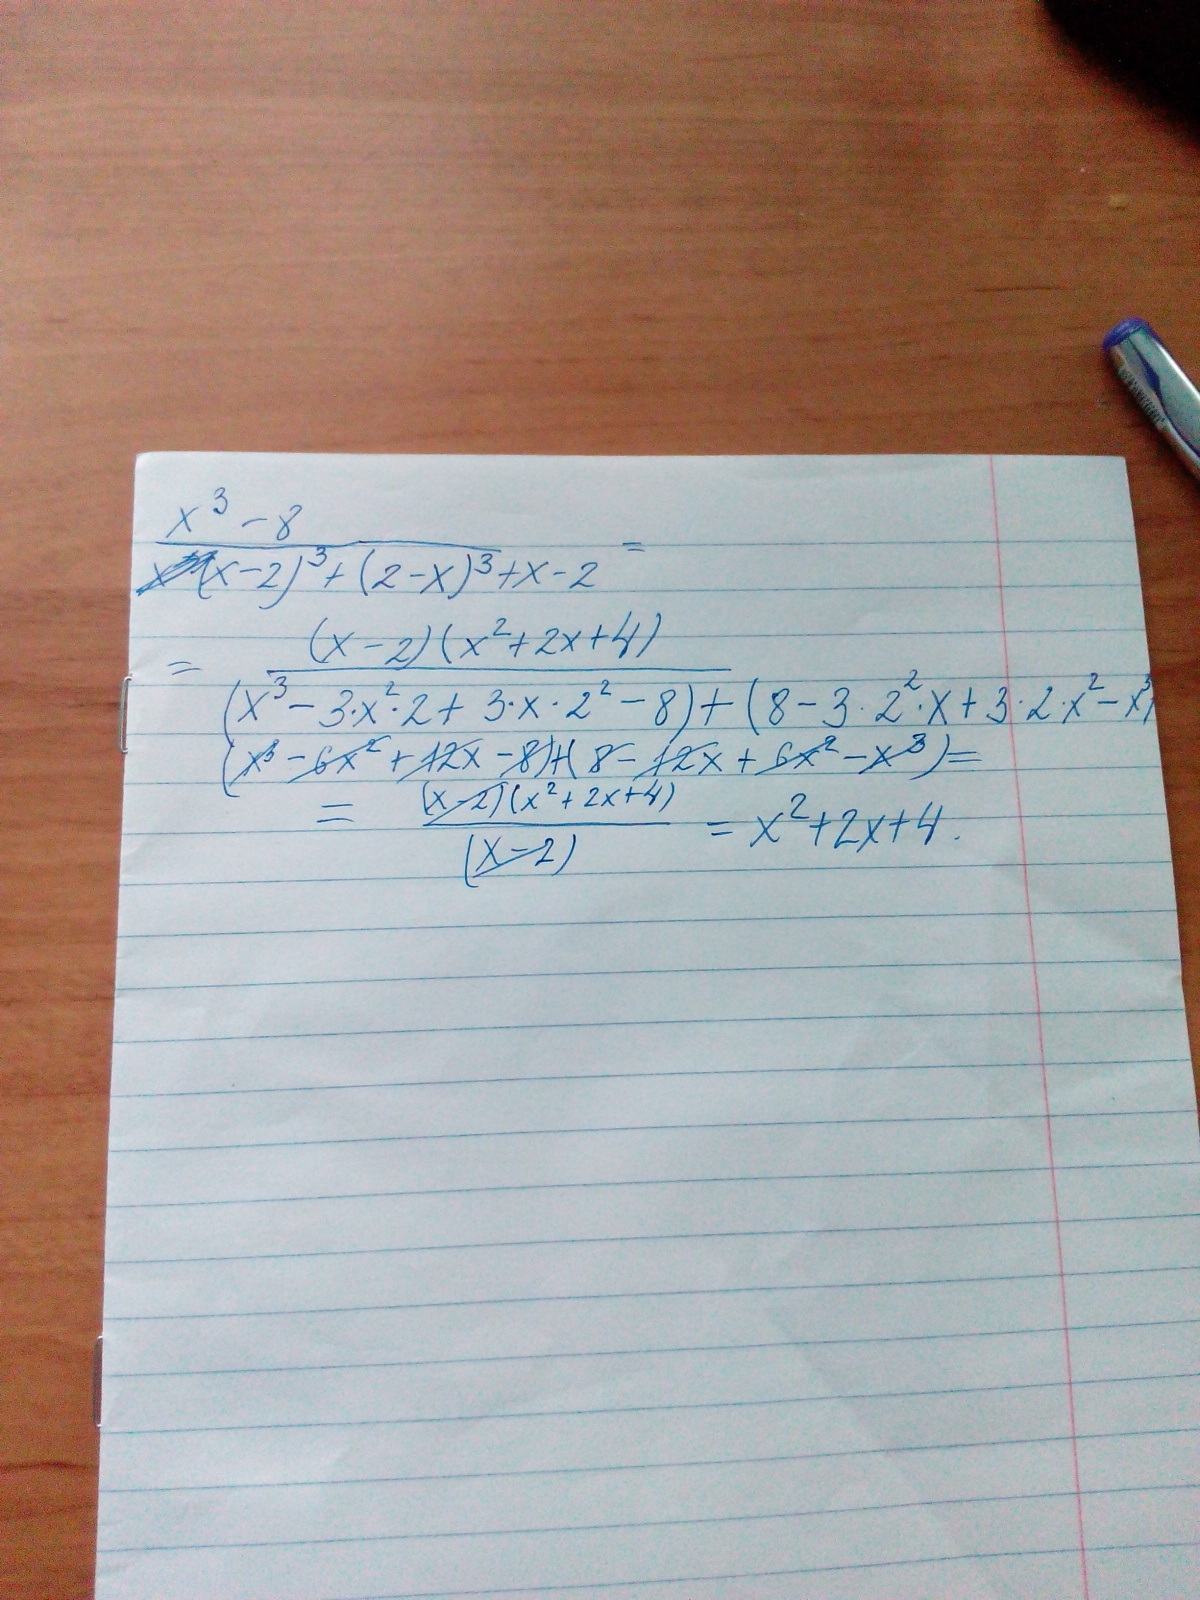 x³ - 8
(x-2)³ + (2-x)³ + x - 2 =
= (x-2)(x²+2x+4)
(x³ - 3·x²·2 + 3·x·2² - 8) + (8 - 3·2²·x + 3·2·x² - x³)
(x³ - 6x² + 12x - 8) + (8 - 12x + 6x² - x³) =
= (x-2)(x²+2x+4)
(x-2) = x² + 2x + 4.